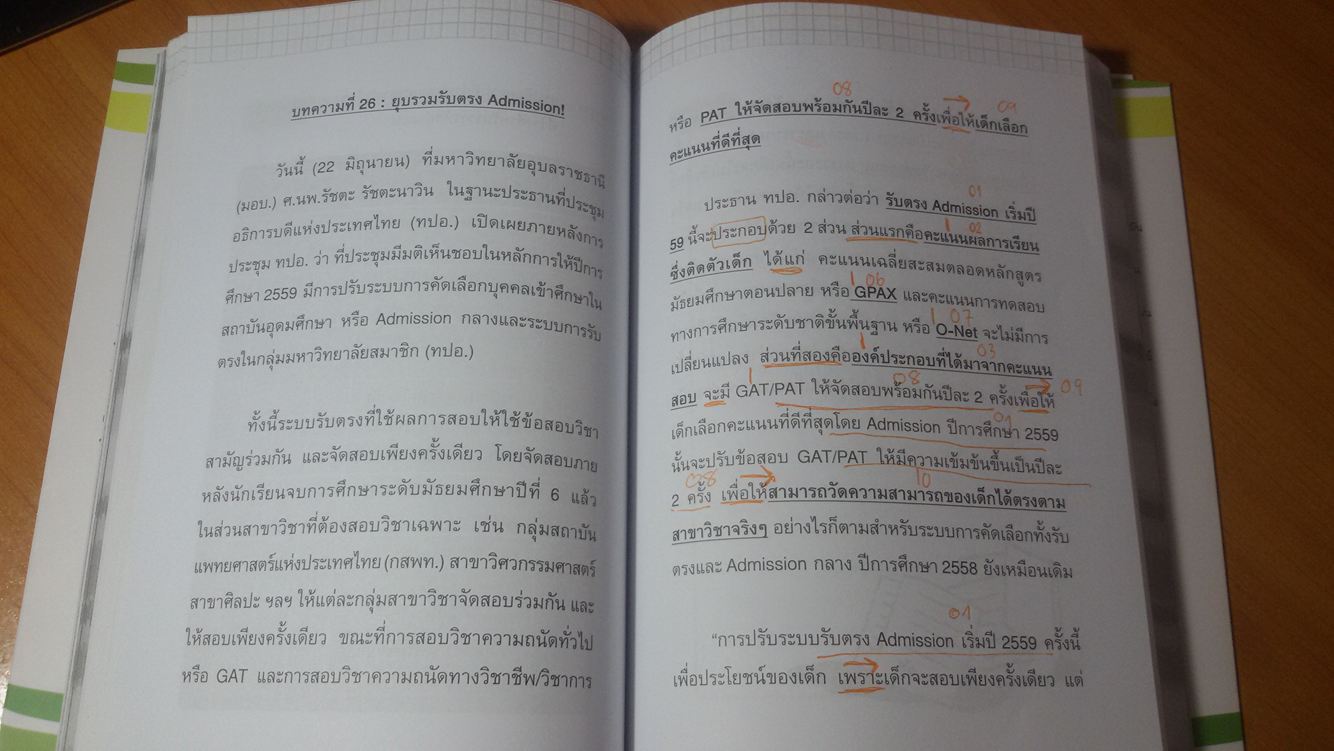 บทความที่ 26 : ยุบรวมรับตรง Admission!
วันนี้ (22 มิถุนายน) ที่มหาวิทยาลัยอุบลราชธานี
(มอบ.) ศ.นพ.รัชตะ รัชตะนาวิน ในฐานะประธานที่ประชุม
อธิการบดีแห่งประเทศไทย (ทปอ.) เปิดเผยภายหลังการ
ประชุม ทปอ. ว่า ที่ประชุมมีมติเห็นชอบในหลักการให้ปีการ
ศึกษา 2559 มีการปรับระบบการคัดเลือกบุคคลเข้าศึกษาใน
สถาบันอุดมศึกษา หรือ Admission กลางและระบบการรับ
ตรงในกลุ่มมหาวิทยาลัยสมาชิก (ทปอ.)
ทั้งนี้ระบบรับตรงที่ใช้ผลการสอบให้ใช้ข้อสอบวิชา
สามัญร่วมกัน และจัดสอบเพียงครั้งเดียว โดยจัดสอบภาย
หลังนักเรียนจบการศึกษาระดับมัธยมศึกษาปีที่ 6 แล้ว
ในส่วนสาขาวิชาที่ต้องสอบวิชาเฉพาะ เช่น กลุ่มสถาบัน
แพทยศาสตร์แห่งประเทศไทย (กสพท.) สาขาวิศวกรรมศาสตร์
สาขาศิลปะ ฯลฯ ให้แต่ละกลุ่มสาขาวิชาจัดสอบร่วมกัน และ
ให้สอบเพียงครั้งเดียว ขณะที่การสอบวิชาความถนัดทั่วไป
หรือ GAT และการสอบวิชาความถนัดทางวิชาชีพ/วิชาการ
08 09
หรือ PAT ให้จัดสอบพร้อมกันปีละ 2 ครั้งเพื่อให้เด็กเลือก
คะแนนที่ดีที่สุด
01
ประธาน ทปอ. กล่าวต่อว่า รับตรง Admission เริ่มปี
02
59 นี้จะประกอบด้วย 2 ส่วน ส่วนแรกคือคะแนนผลการเรียน
ซึ่งติดตัวเด็ก ได้แก่ คะแนนเฉลี่ยสะสมตลอดหลักสูตร
06
มัธยมศึกษาตอนปลาย หรือ GPAX และคะแนนการทดสอบ
07
ทางการศึกษาระดับชาติขั้นพื้นฐาน หรือ O-Net จะไม่มีการ
03
เปลี่ยนแปลง ส่วนที่สองคือองค์ประกอบที่ได้มาจากคะแนน
08 09
สอบ จะมี GAT/PAT ให้จัดสอบพร้อมกันปีละ 2 ครั้งเพื่อให้
01
เด็กเลือกคะแนนที่ดีที่สุดโดย Admission ปีการศึกษา 2559
นั้นจะปรับข้อสอบ GAT/PAT ให้มีความเข้มข้นขึ้นเป็นปีละ
08 10
2 ครั้ง เพื่อให้สามารถวัดความสามารถของเด็กได้ตรงตาม
สาขาวิชาจริงๆ อย่างไรก็ตามสำหรับระบบการคัดเลือกทั้งรับ
ตรงและ Admission กลาง ปีการศึกษา 2558 ยังเหมือนเดิม
01
“การปรับระบบรับตรง Admission เริ่มปี 2559 ครั้งนี้
เพื่อประโยชน์ของเด็ก เพราะเด็กจะสอบเพียงครั้งเดียว แต่